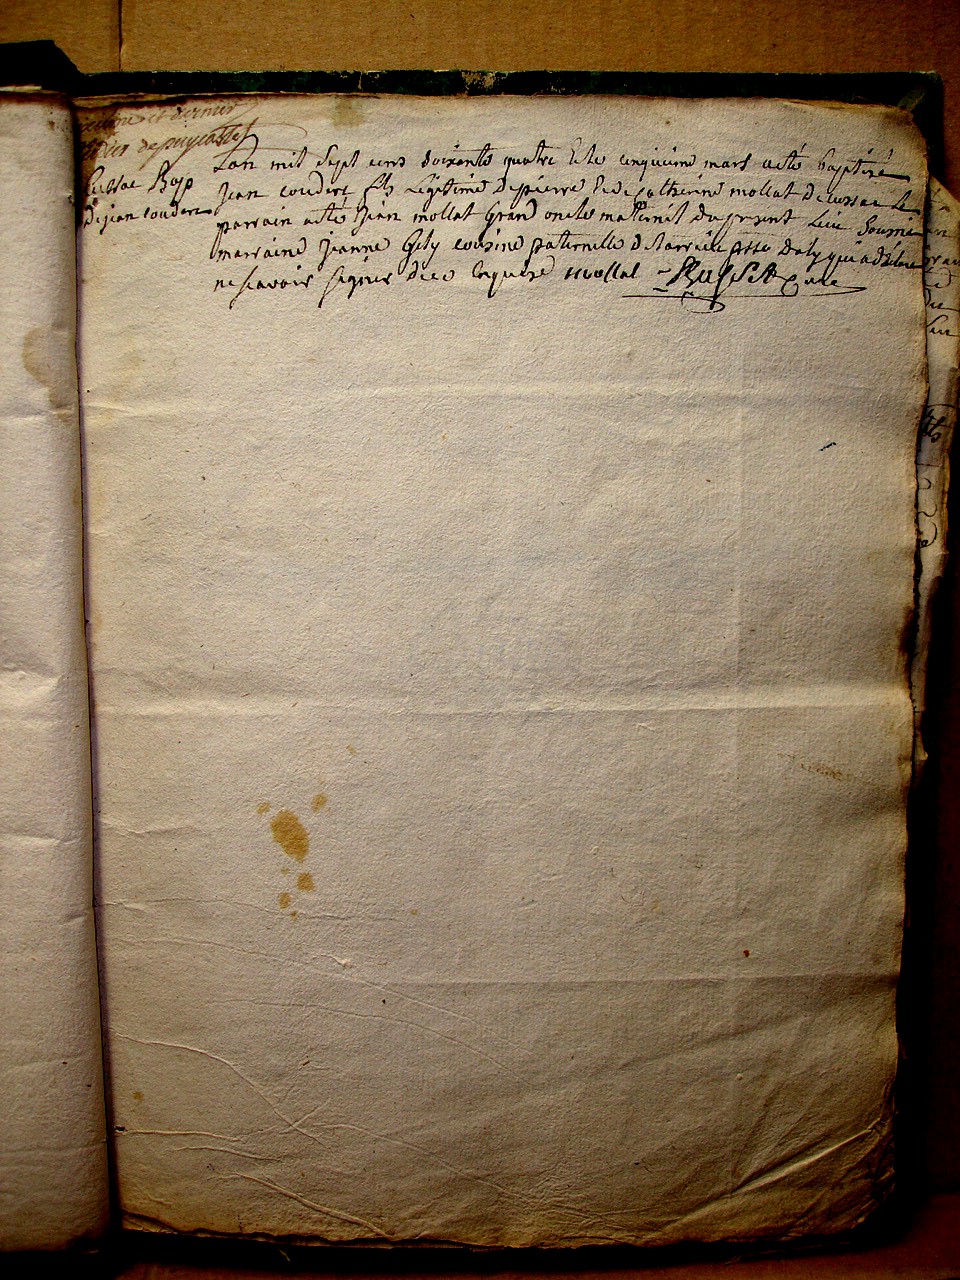 et dernier
Cussac Bap
de jean coudere
Lan mil sept cens soixente quatre et le cinquieme mars a eté baptisé
Jean coudere fils Legitime de pierre et de catherine mollat de cussac le
parrain a eté Jean mollat Grand oncle maternel du present Lieu soussigné
marraine Jeanne Gely cousine paternelle de qui a declaré
ne scavoir signer de ce enquise mollat curé